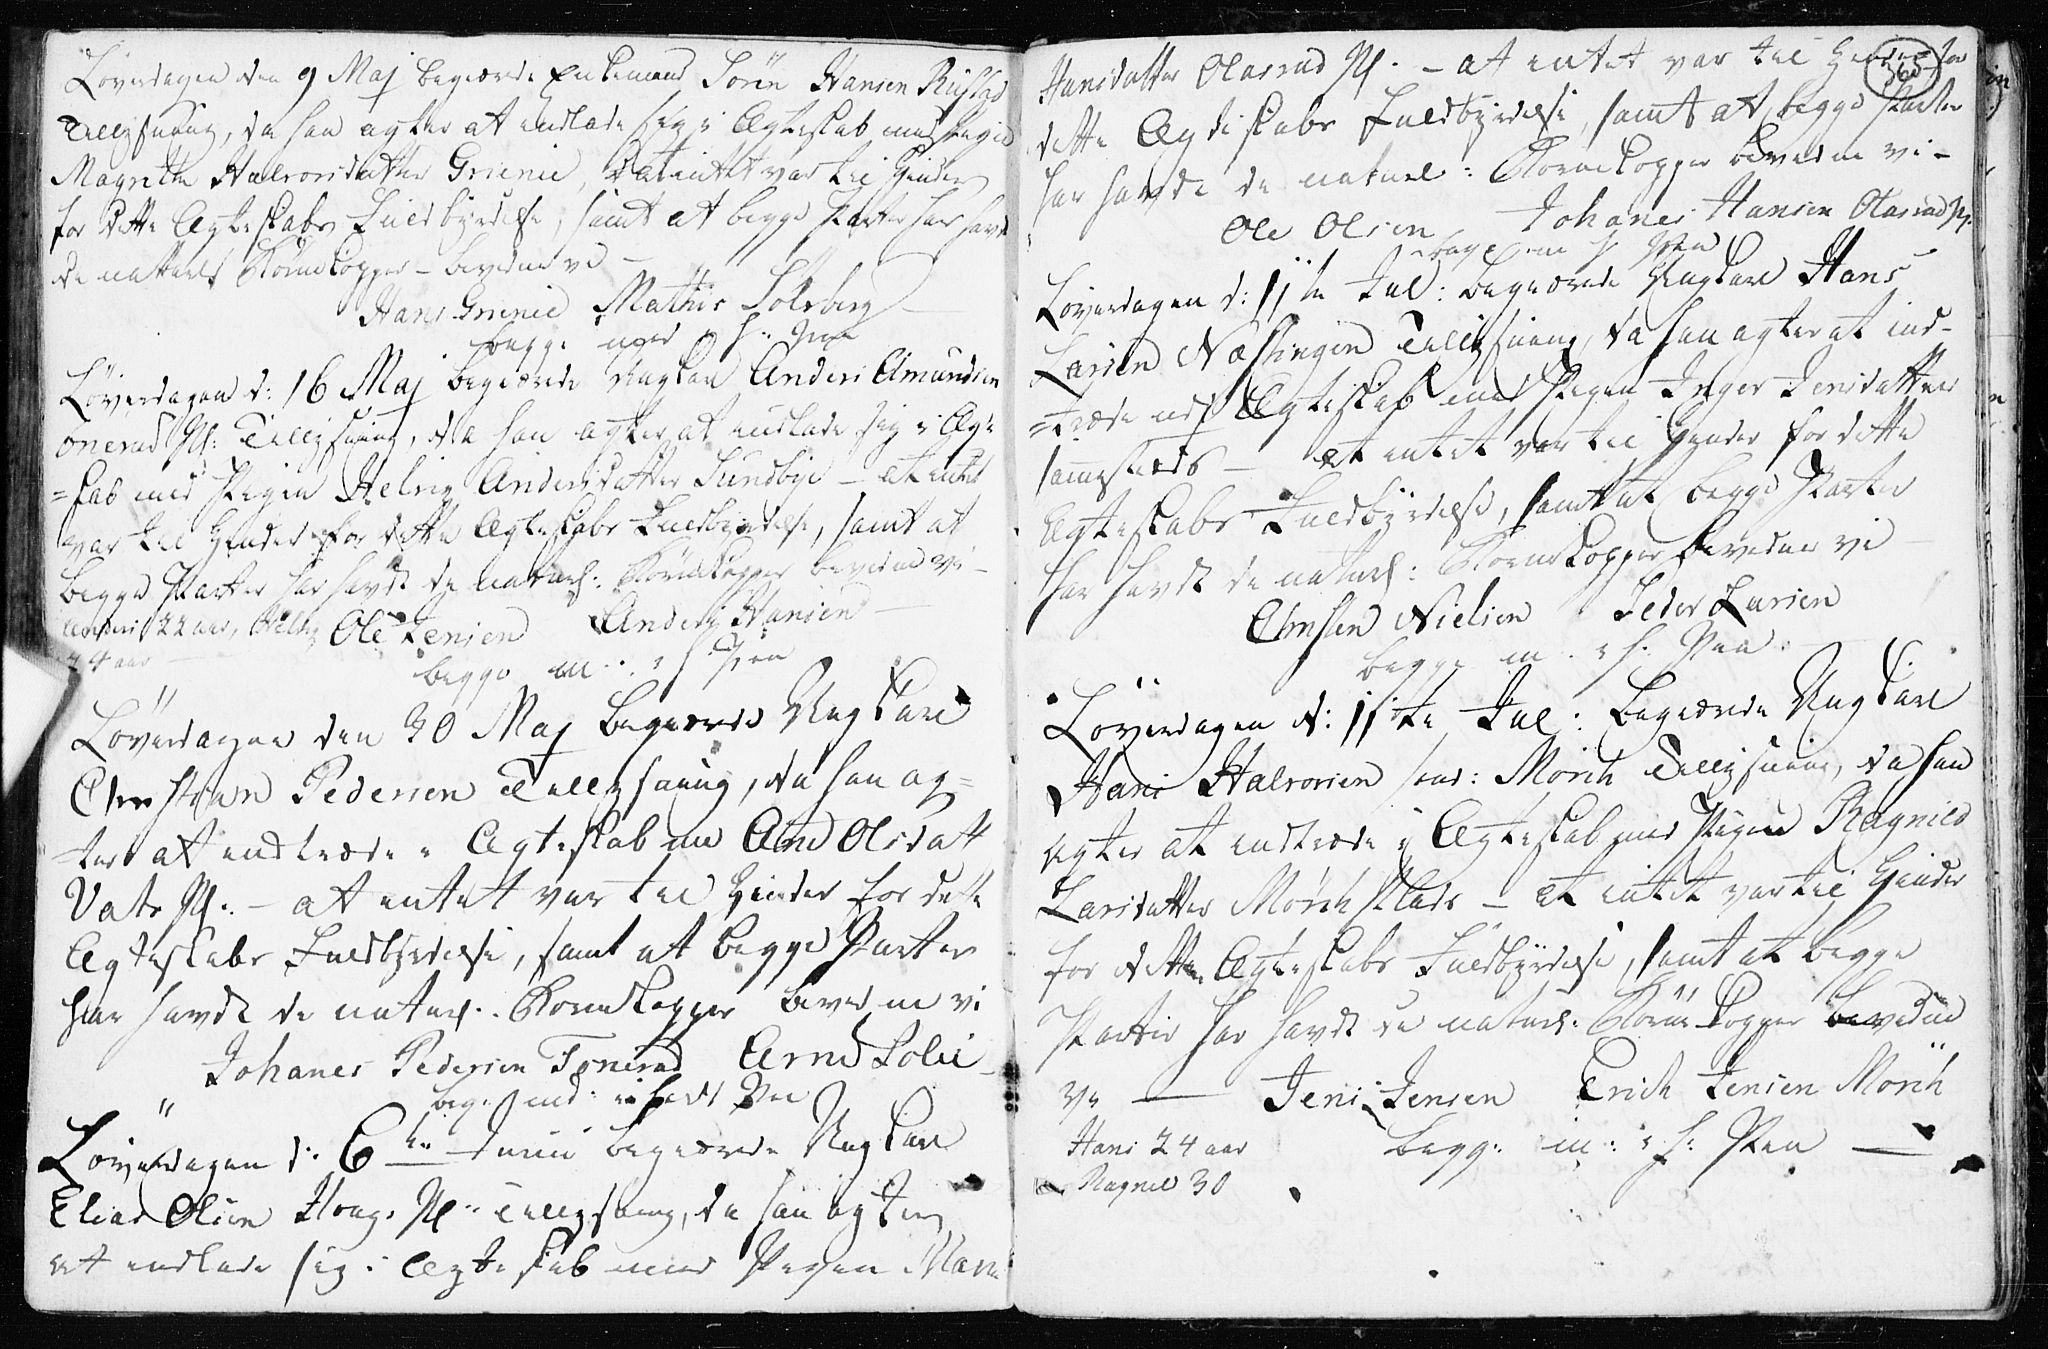 Løverdagen den 9 Maj begiærede Enkemand Sören Hansen Rustad
Tillysning, da han agter at indlade sig i Ægteskab med Pigen
Magrethe Halvorsdatter Grienie, at intet var til Hinder
for dette Ægteskabs Fuldbyrdelse, samt at begge Parter har havt
de naturl Börnekopper – bevidner vi –
Hans Grienie Mathis Solberg
begge med i h: Pen
Løverdagen d: 16 Maj begiærede Ungkarl Anders Amundsen
onerud Pl: Tillysning, da han agter at indlade sig i Ægte
=skab med Pigen Helvig Andersdatter Sundbye – at intet
var til Hinder for dette Ægteskabs Fuldbyrdelse, samt at
begge Parter har havdt de naturl: Börnekopper bevidner vi –
Anders 22 aar, Helvig Ole Jensen Anders Hansen
24 aar begge m: i h: Pen
Löverdagen den 30 Maj begiærede Ungkarl
Christian Pedersen Tillysning, da han ag=
ter at indtræde i Ægteskab me Ane Olsdatt
Vats Pl. – at intet var til Hinder for dette
Ægteskabs Fuldbyrdelse, samt at begge Parter
har havdt de naturl. Börnekopper bevidne vi
Johanes Pedersen Tonerud Arne Solie
beg: med i holdt Pen
Löverdagen d: 6te Junii begiærede Ungkarl
Elias Olsen Houg Pl: Tillysning, da han agter
at indlade sig i Ægteskab med Pigen Maria
360
Hansdatter Olasrud Pl. – at intet var til Hinder for
dette Ægteskabs Fuldbyrdelse, samt at begge Parter
har havde de naturl: Börnekopper bevidne vi –
Ole Olsen Johanes Hansen Olasrud Pl.
begge m h Pen
Löverdagen d: 11te Jul: begiærede Ungkarl Hans
Larsen Næstingen Tillysning, da han agter at ind-
=træde udi Ægteskab med Pigen Inger Jensdatter
sammesteds – at intet var til Hinder for dette
Ægteskabs Fuldbyrdelse, samt at begge Parter
har havdt de naturl: Börnekopper bevidner vi –
Christen Nielsen Peder Larsen
begge m. i h. Pen
Löverdagen d: 11te Jul: begiærede Ungkarl
Hans Halvorsen Mörch Tillysning, da han
agter at indtræde i Ægteskab med Pigen Ragnild
Larsdatter Mörch Plads – at intet var til Hinder
for dette Ægteskabs Fuldbyrdelse, samt at begge
Parter har havdt de naturl: Börnekopper bevidne
vi — Jens Jensen Erich Jensen Mörch
Hans 24 aar begge m: i h: Pen —
Ragnild 30